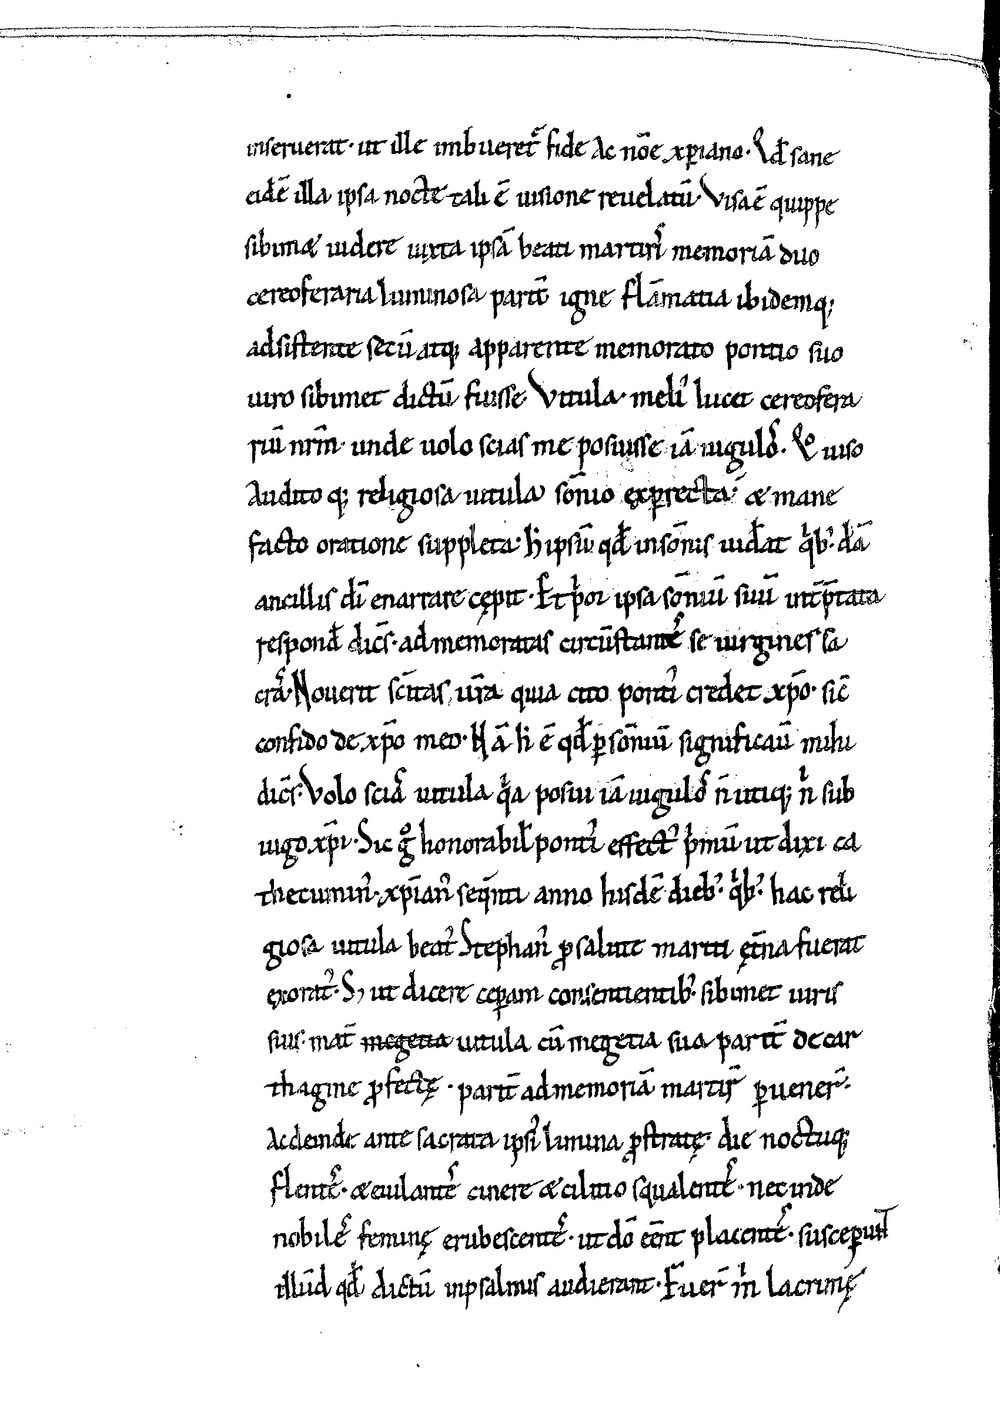 inseruerat· ut ille imbueret᷑ fide ac nōe xp̄iano· Qd̄ sane
eidē illa ipsa nocte tali ē uisione reuelatū· Visa ē quippe
sibimæ uidere iuxta ipsā beati martiris memoriā duo
cereoferaria luminosa partī igne flāmatia ibidemq;
adsistente secū atq; apparente memorato pontio suo
uiro sibimet dictū fuisse· Vitula· meli᷒ lucet cereofera
riū nr̄m· unde uolo scias me posuisse iā iugulō· Quo uiso
Audito q; religiosa uitula sōnio exp̱recta· æ mane
facto oratione suppleta· h̄ ipsū qd̄ in sōnis uid̄at q̄b᷒· dā
ancillis dī enarrare cępit· Et p̄or ipsa sōniū suū int̄p̄tata
respond̄ dicēs· ad memoratas circūstantēs se uirgines sa
crās· Nouerit scītas ur̄a quia cito ponti᷒ credet xp̄o· sic̄
confido de xp̄o meo· Nā h̄ ē qd̄ p̱ sōniū significauī mihi
dicēs· Volo sciās uitula q̄a posui iā iugulō n̄ utiq; n̄ sub
iugo xp̄i· Sic g̊ honorabil̄ ponti᷒ effect᷒ p̄mū ut dixi ca
thecumin᷒· xp̄ian᷒ seq̄nti anno hisdē dieb᷒· q̄b᷒· hac reli
giosa uitula beat᷒ Stephan᷒ ꝓ salute mariti ęt̄na fuerat
exorat᷒· S; ut dicere cep̱am consentientib᷒ sibimet uiris
suis· mat̄ megetia uitula cū megetia sua partī de car
thagine ꝓfectę· partī ad memoriā martir̄ p̱uener̄·
Ac deinde ante sacrata ipsi᷒ limina ꝓstratę· die noctuq;
flentēs· æ eiulantēs cinere æ cilitio squalentēs· nec inde
nobilēs feminę erubescentēs· ut dō eēnt placentēs· suscep̱unt
illūd qd̄ dictū in psalmis audierant· Fuer̄ m̄ lacrimę